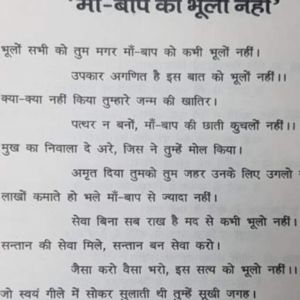 'माँ-बाप को भूलो नहीं'
भूलों सभी को तुम मगर माँ-बाप को कभी भूलों नहीं।
उपकार अगणित है इस बात को भूलों नहीं।।
क्या-क्या नहीं किया तुम्हारे जन्म की खातिर।
पत्थर न बनों, माँ-बाप की छाती कुचलों नहीं।।
मुख का निवाला दे अरे, जिस ने तुम्हें मोल किया।
अमृत दिया तुमको तुम जहर उनके लिए उगलो
लाखों कमाते हो भले माँ-बाप से ज्यादा नहीं।
सेवा बिना सब राख है मद से कभी भूलो नहीं।
सन्तान की सेवा मिले, सन्तान बन सेवा करो।
जैसा करो वैसा भरो, इस सत्य को भूलो नहीं।।
जो स्वयं गीले में सोकर सुलाती थी तुम्हें सुखी जगह।